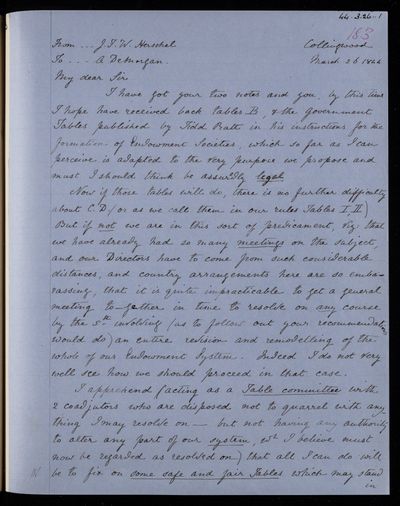 44.3.26-1
183
From ... J.F.W. Herschel Collingwood
To ... A DeMorgan. March 26 1844
My dear Sir
I have got your two notes and you by this time
I hope have received back tables B, & the Government
Tables published by Tidd Pratt in his instructions for the
formation of Endowment Societies, which so far as I can
perceive is adapted to the very purpose we propose and
must I should think be assuredly legal
Now if those tables will do, there is no further difficulty
about C.D (or as we call them in our rules Tables I. II)
But if not we are in this sort of predicament, viz: that
we have already had so many meetings on the subject,
and our Directors have to come from such considerable
distances, and country arrangements here are so embar-
rassing, that it is quite impracticable to get a general
meeting to-gether in time to resolve on any course
by the 5th involving (as to follow out your recommendation
would do) an entire revision and remodelling of the
whole of our Endowment System. Indeed I do not very
well see how we should proceed in that case.
I apprehend (acting as a Table committee with
2 coadjutors who are disposed not to quarrel with any
thing I may resolve on — but not having any authority
to alter any part of our system, wh I believe must
now be regarded as resolved on) that all I can do will
be to fix on some safe and fair Tables which may stand
in